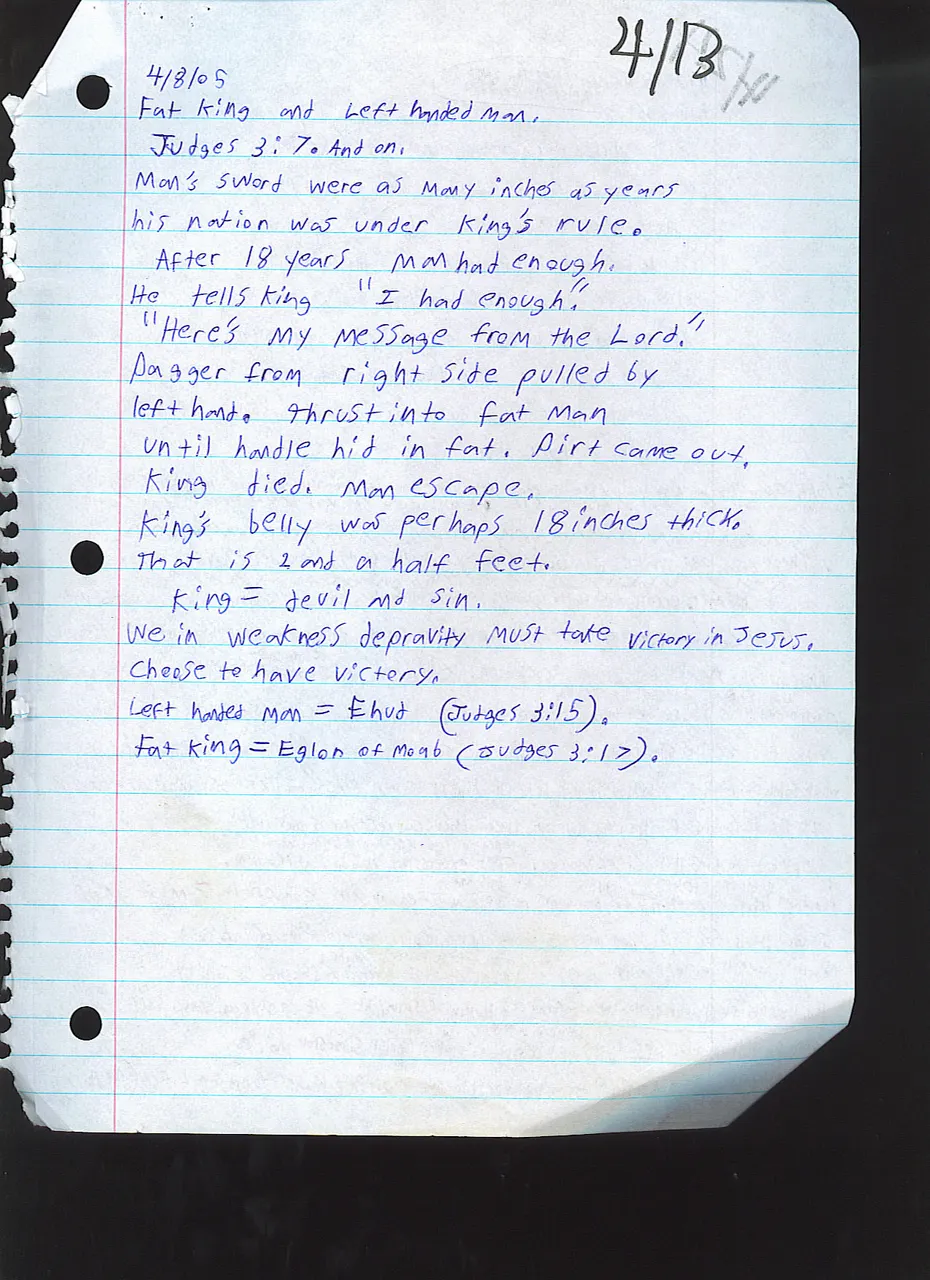 4/13
4/8/05
Fat king and Left handed man.
Judges 3:7. And on.
Man's sword were as many inches as years
his nation was under king's rule.
After 18 years man had enough.
He tells king "I had enough."
"Here's my message from the Lord."
Dagger from right side pulled by
left hand. Thrust into fat man
until handle hid in fat. Dirt came out.
King died. Man escape.
King's belly was perhaps 18 inches thick.
That is 2 and a half feet.
King = devil and sin.
We in weakness depravity must take victory in Jesus.
Choose to have victory.
Left handed man = Ehud (Judges 3:15).
Fat king = Eglon of Moab (Judges 3:17).